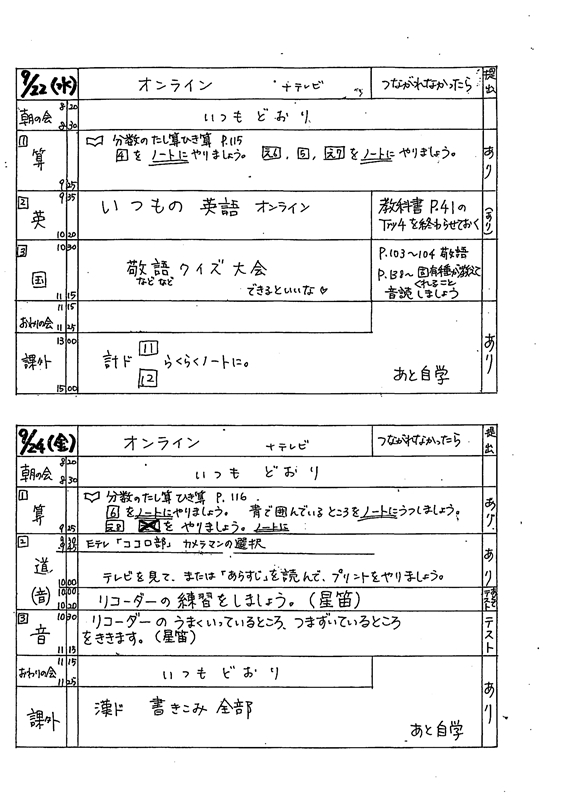 9/22(水) オンライン +テレビ つながれなかったら 提出
朝の会 8 20 8 30 いつもどおり
1 算 9 25 分数のたし算ひき算 P.115 あり
4 を ノートにやりましょう。 え6 , 5 , え7 を ノートに やりましょう。
2 英 9 35 10 20 いつもの 英語 オンライン 教科書 P.41の Try4 を終わらせておく (あり)
3 国 10 30 11 15 敬語クイズ大会 などなど できるといいな♡
P.103〜104 敬語
P.138〜 固有種が教えてくれること
音読しましょう
おわりの会 11 15 11 25
課外 13 00 15 00 計ド 11 12 らくらくノートに。 あと自学 あり
9/24(金) オンライン +テレビ つながれなかったら 提出
朝の会 8 20 8 30 いつも どおり
1 算 9 25 分数のたし算ひき算 P.116 あり
6 をノートにやりましょう。 青で囲んでいるところをノートにうつしましょう。
え8 をやりましょう。 ノートに
2 道 (音) Eテレ「ココロ部」 カメラマンの選択 あり
テレビを見て、または「あらすじ」を読んで、プリントをやりましょう。
10 00 10 20 リコーダーの練習をしましょう。(星笛)
3 音 10 30 11 15 リコーダーの うまくいっているところ、つまずいているところ テスト
をききます。(星笛)
おわりの会 11 15 11 25 いつも どおり
課外 漢ド 書きこみ 全部 あと自学 あり